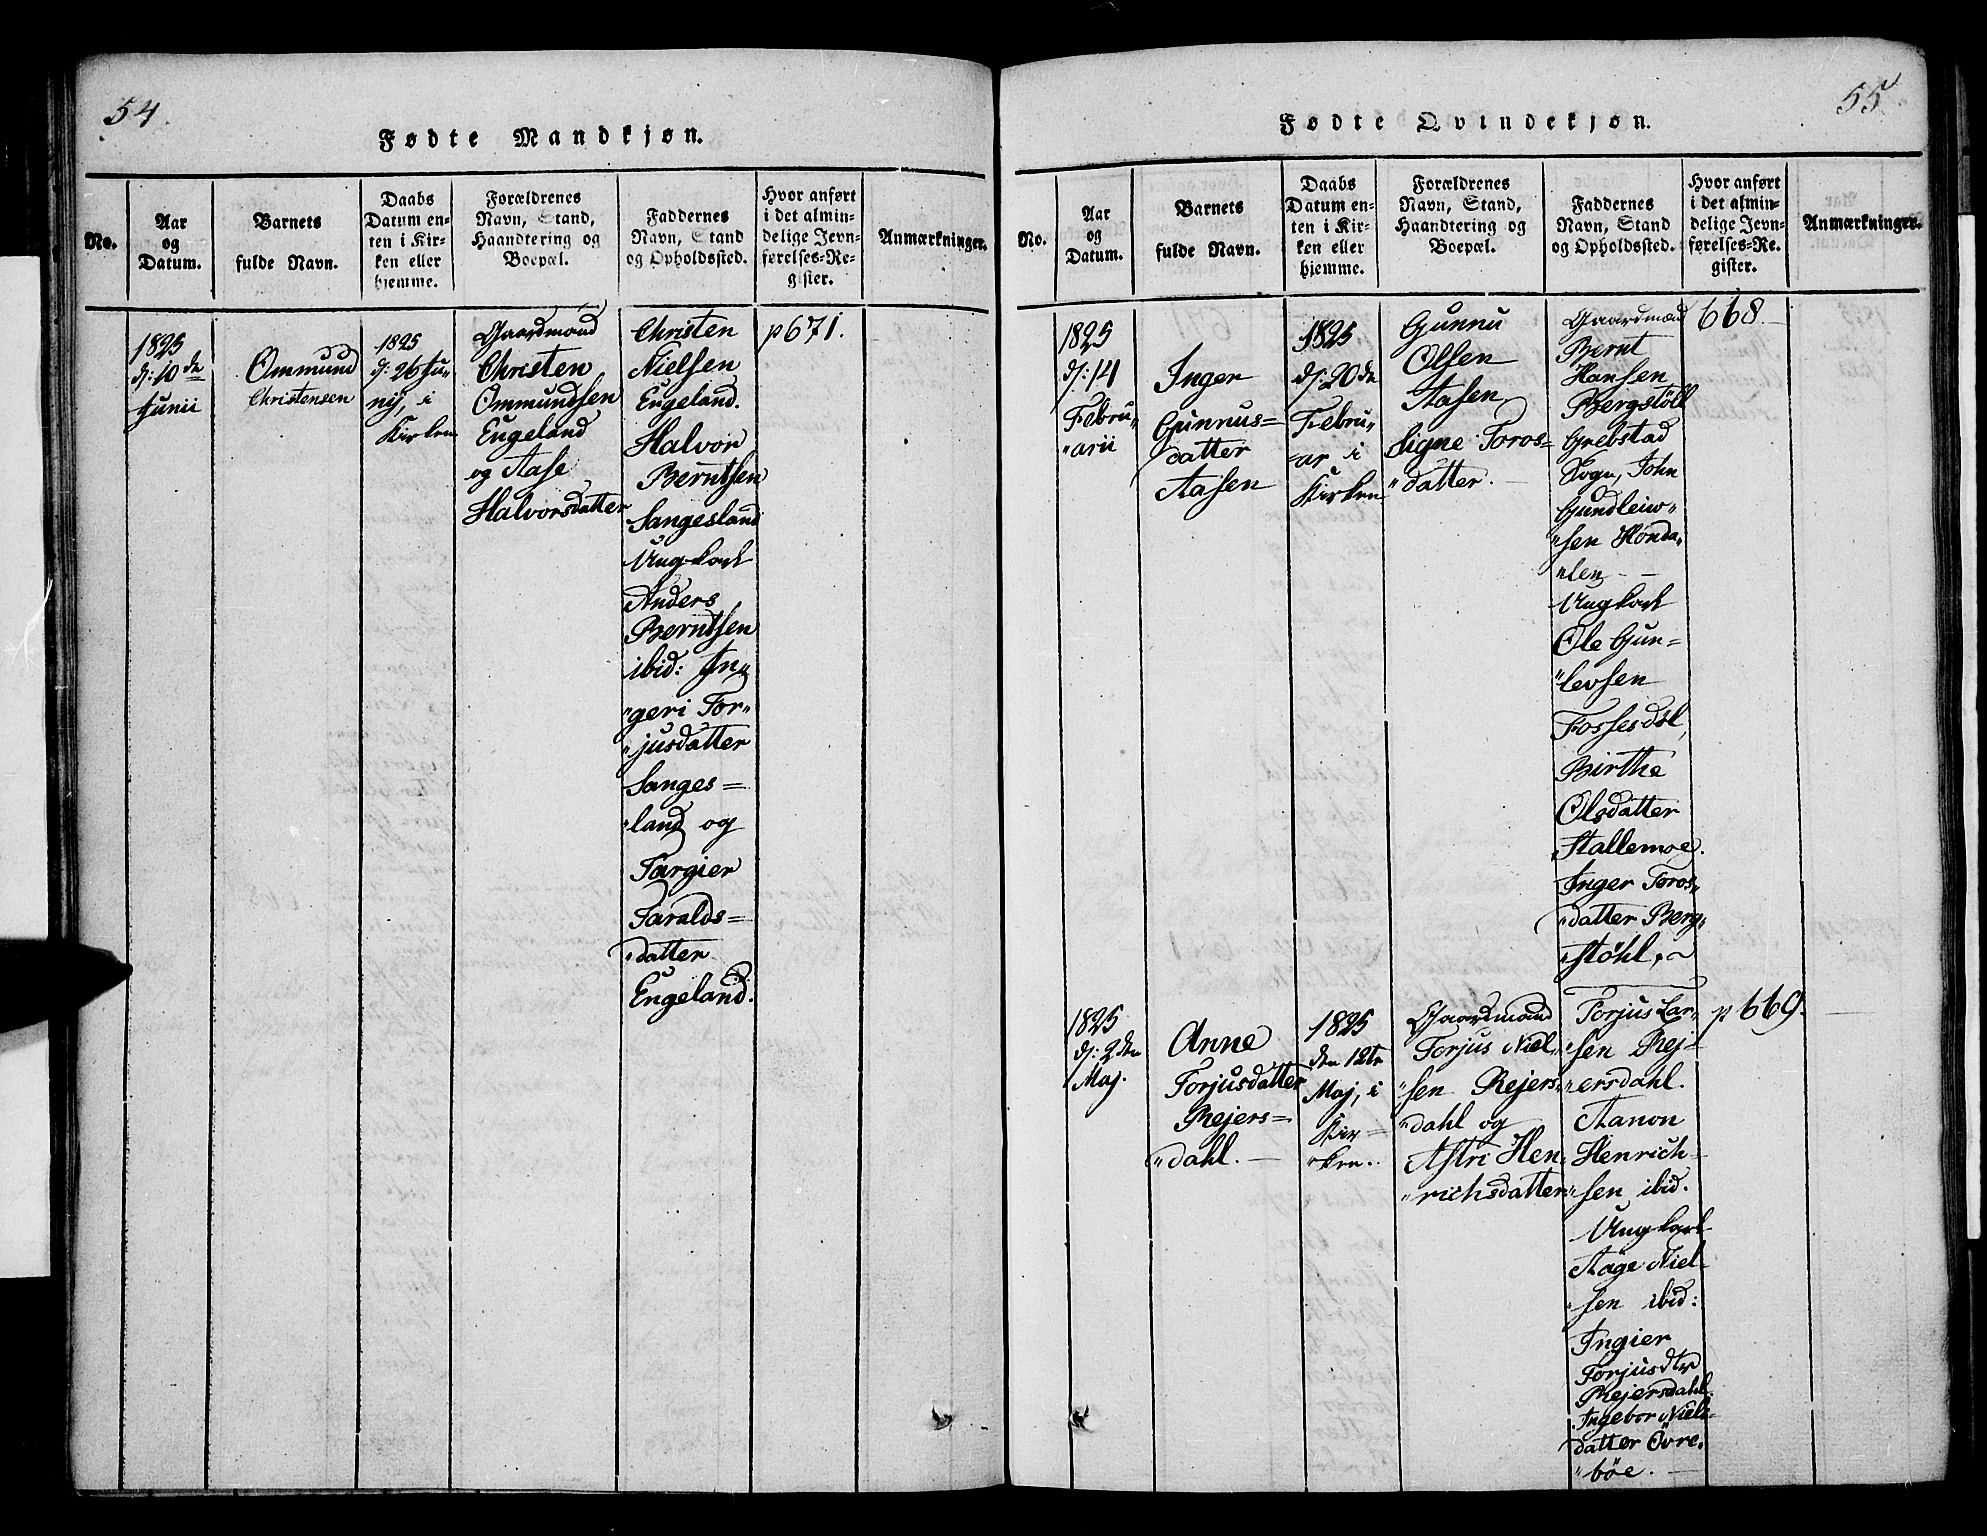 54.
Fødte Mandkjøn.
No.
Aar
og
Datum.
Barnets
fulde Navn.
Daabs
Datum en-
ten i Kir-
ken eller
hjemme.
Forældrenes
Navn, Stand,
Haandtering og
Boepæl.
Faddernes
Navn, Stand
og Opholdssted.
Hvor anført
i det almin-
delige Jevn-
førelses-Re-
gister.
Anmærkninger.
1825
d: 10 de
Junii
Ommund
Christensen
1825
d: 26 Ju-
nij, i
Kirken
Gaardmand
Christen
Ommundsen
Eugeland
og Aase
Halvorsdatter
Christen
Nielsen
Eugeland.
Halvor
Berntsen
Sangesland
Ungkarl
Anders
Berntsen
ibid: In„
„geri Tor„
„jusdatter
Sanges=
„land og
Targier
Taralds=
„datter
Engeland.
p 671.
55
Fødte Qvindekjøn.
No.
Aar
og
Datum.
Barnets
fulde Navn.
Daabs
Datum en-
ten i Kir-
ken eller
hjemme.
Forældrenes
Navn, Stand,
Haandtering og
Boepæl.
Faddernes
Navn, Stand
og Opholdssted.
Hvor anført
i det almin-
delige Jevn-
førelses-Re-
gister.
Anmærkninger.
1825
d: 14
Febru„
„arii
Inger
Gunnus=
datter
Aasen
1825
d: 20 de
Febru„
=ar i
Kirken
Gunnu
Olsen
Aasen
Signe Toros=
„datter.
Gaardmænd
Bernt
Hansen
Bergstöll
Grebstad
Sogn, John
Gundleiw„
„sen Honda„
„len
Ungkarl
Ole Gun=
„levsen
Fossesdal,
Birthe
Olsdatter
Stallemoe.
Inger Toros„
„datter Berg„
„støhl.
668
1825
d: 2 den
Maj.
Anne
Torjusdatter
Rejers=
„dahl.
1825
den 12te
Maj, i
Kir=
„ken.
Gaardmand
Torjus Niel„
„sen Rejers„
„dahl og
Astri Hen„
„richsdatter
Torjus Lar„
„sen Rej=
„ersdahl.
Aanon
Henrich=
„sen ibid.
Ungkarl
Aage Niel=
„sen ibid:
Ingier
Torjusdtr
Rejersdahl.
Ingebor Niels=
datter Övre„
„böe.
p 669.